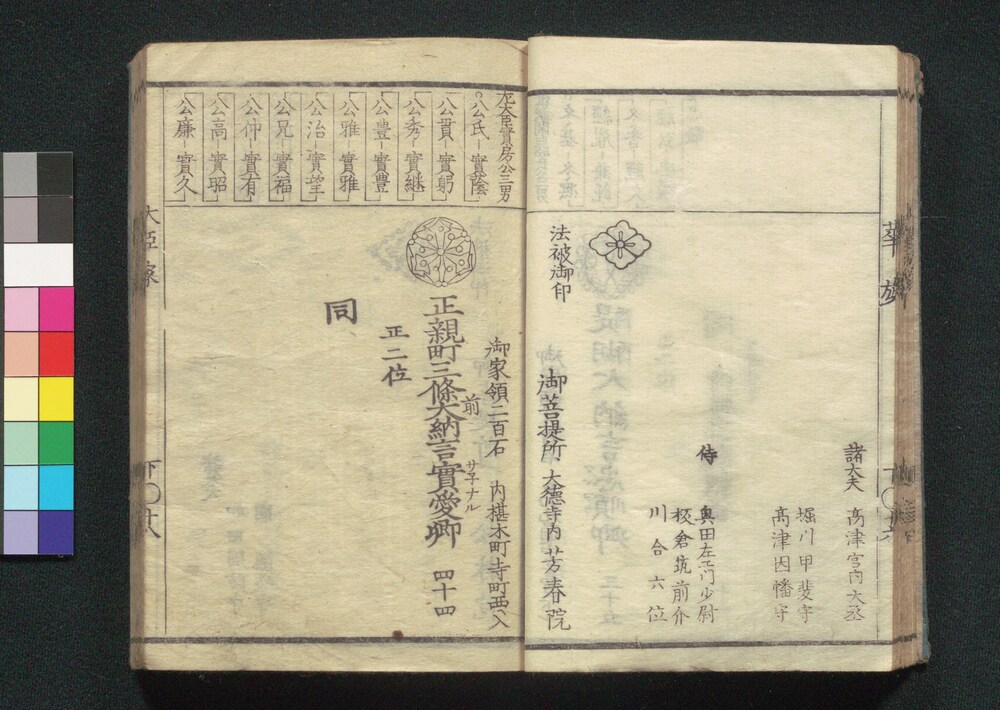 華族
諸大夫
高津宮内大丞
堀川甲斐守
高津因幡守
侍
奥田左エ门少尉
板倉筑前介
川合六位
法被御印
御菩提所 大德寺内 芳春院
左大臣實房公三男
公氏 實蔭
公貫 實躬
公秀 實継
公豊 實豊
公雅 實雅
公治 實望
公兄 實福
公仲 實有
公高 實昭
公廉 實久
御家領二百石 内椹木町寺町西入
正親町三條前大納言實愛卿 四十四
サ子ナル
正二位
同
大臣家
下〇十八